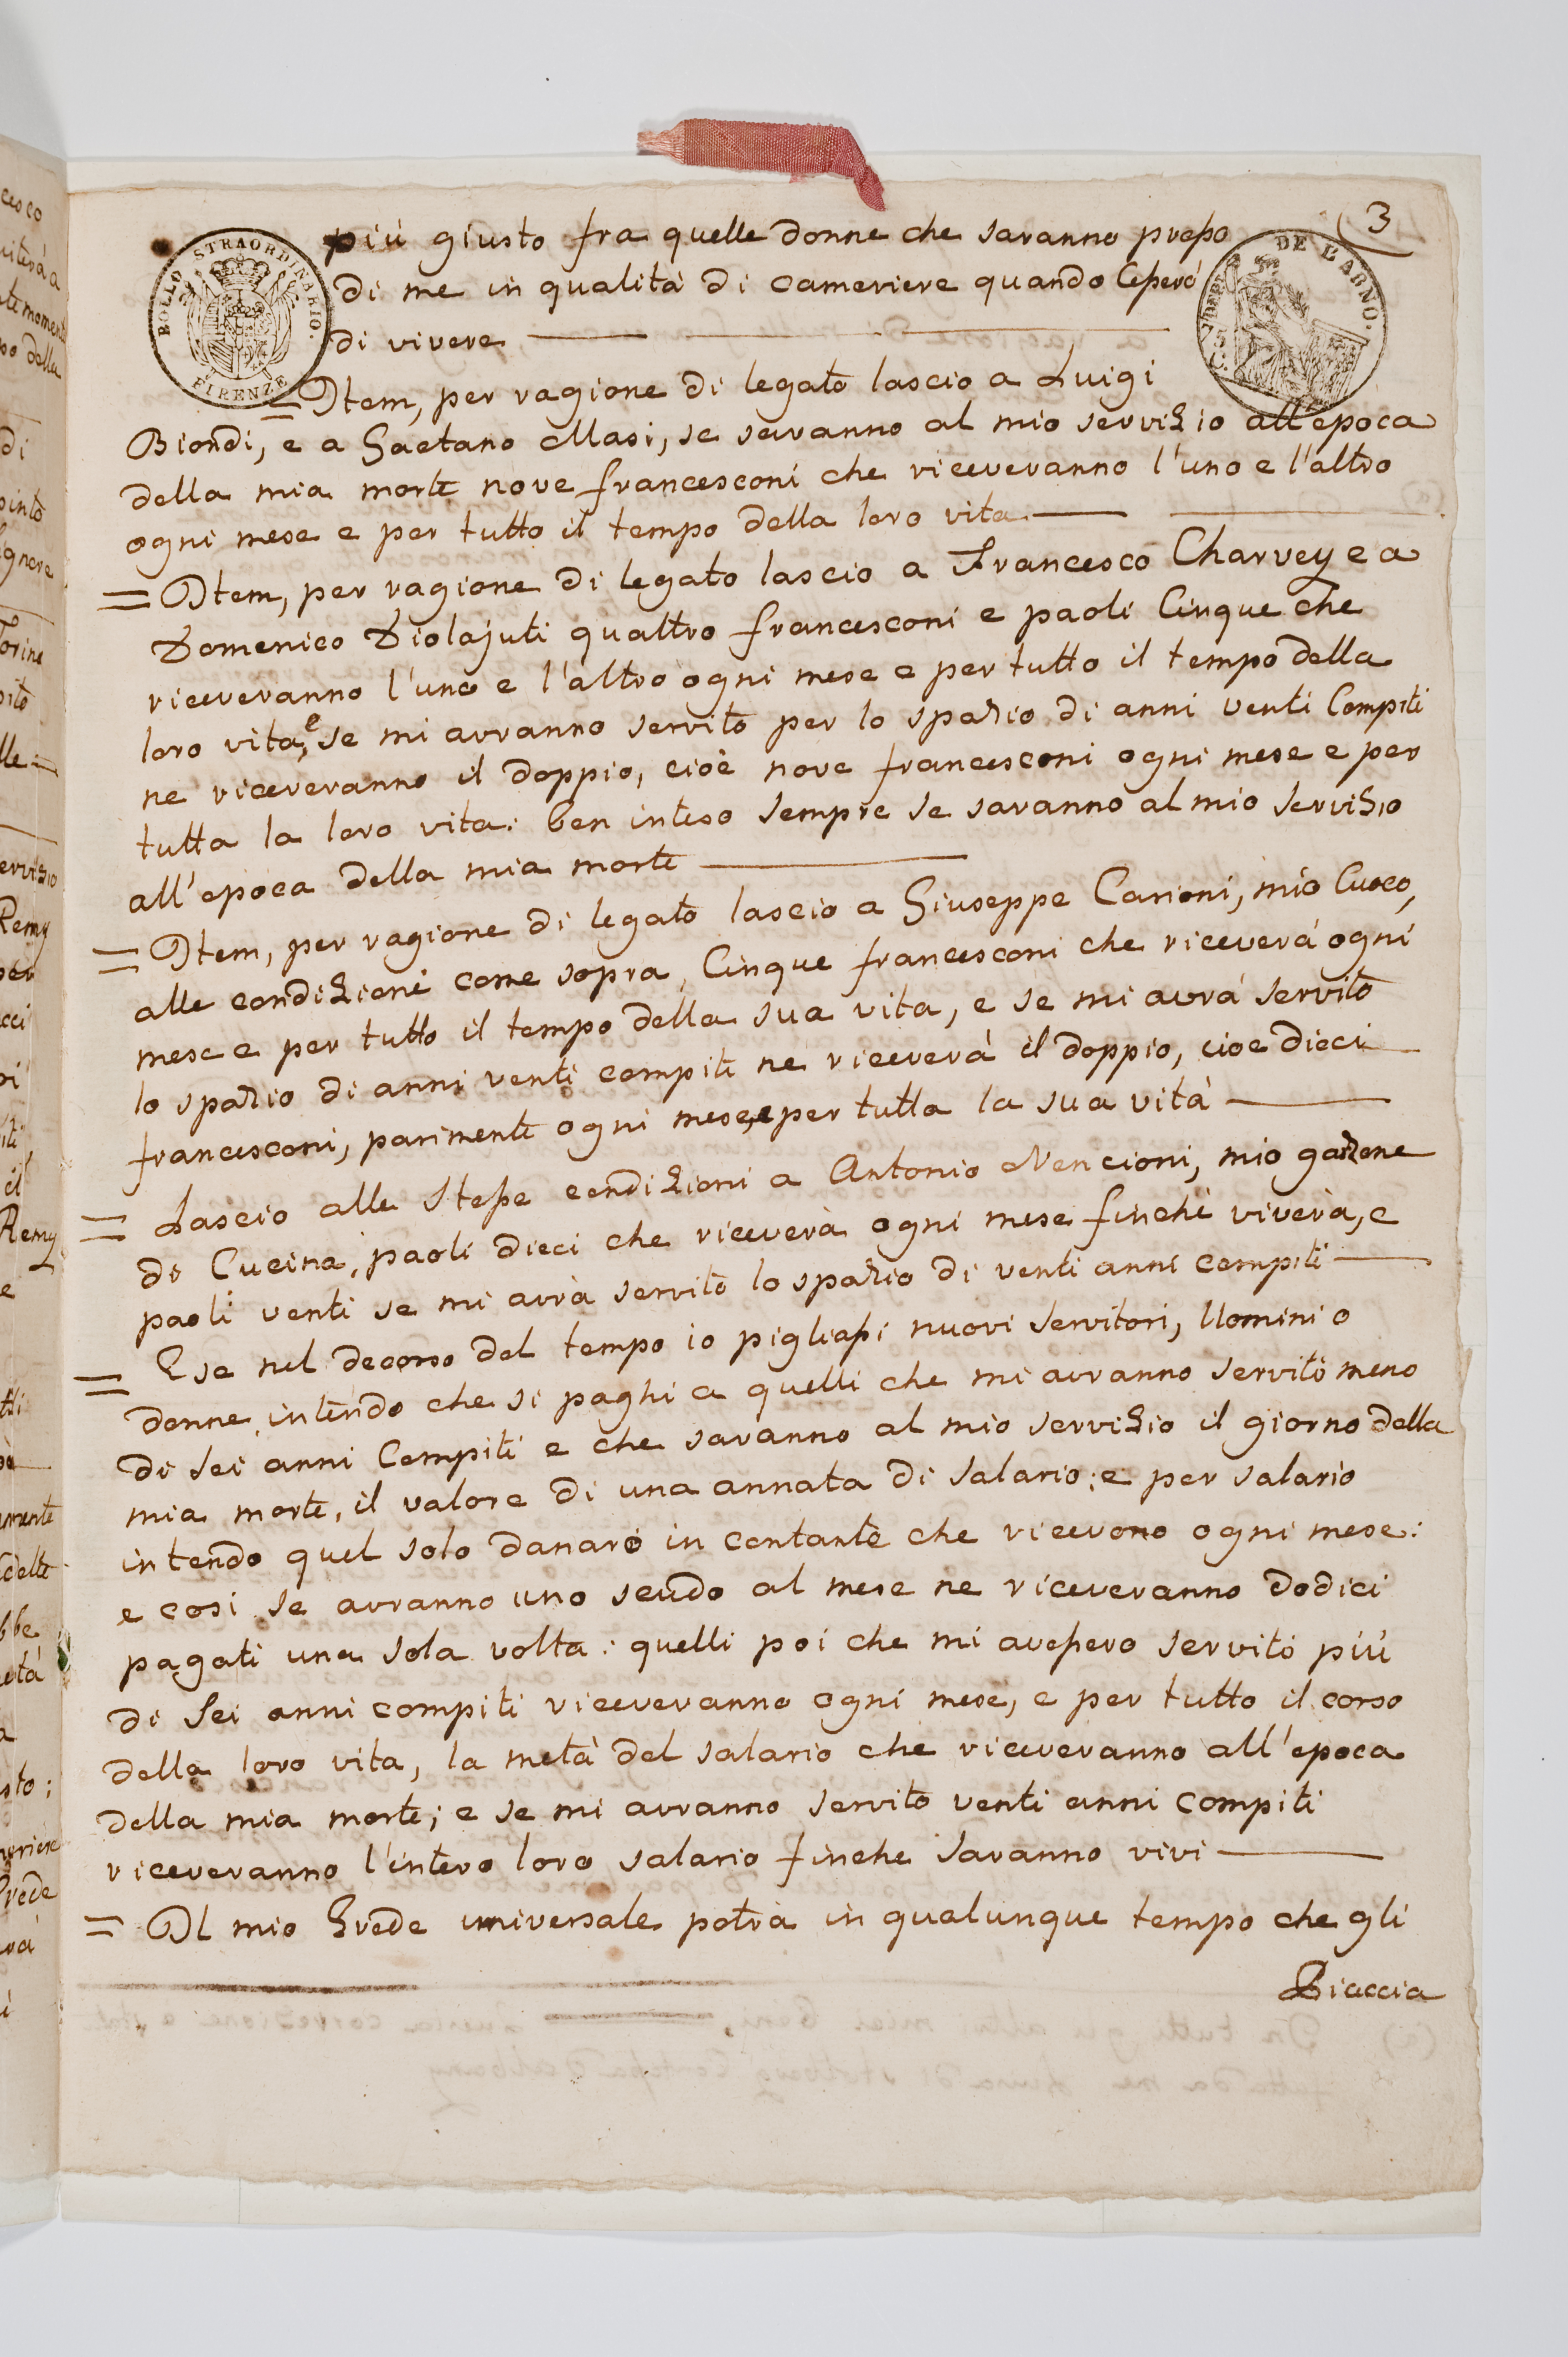 3
BOLLO STRAORDINARIO.
FIRENZE
DE L'ARNO.
più giusto fra quelle donne che saranno presso
di me in qualità di cameriere quando Cesserò
di vivere
= Item, per ragione di legato lascio a Luigi
Biondi, e a Gaetano Masi, se saranno al mio servizio all'epoca
della mia morte nove francesconi che riceveranno l'uno e l'altro
ogni mese e per tutto il tempo della loro vita
= Item, per ragione di legato lascio a Francesco Charvey e a
Domenico Diolajuti quattro francesconi e paoli Cinque che
riceveranno l'uno e l'altro ogni mese e per tutto il tempo della
loro vita, e se mi avranno servito per lo spazio di anni venti Compiti
ne riceveranno il doppio, cioè nove francesconi ogni mese e per
tutta la loro vita: ben inteso sempre se saranno al mio servizio
all'epoca della mia morte
= Item, per ragione di legato lascio a Giuseppe Carioni, mio Cuoco,
alle condizioni come sopra, Cinque francesconi che riceverà ogni
mese e per tutto il tempo della sua vita, e se mi avrà servito
lo spazio di anni venti compiti ne riceverà il doppio, cioe dieci
francesconi, parimente ogni mese, e per tutta la sua vita
= Lascio alle Stesse condizioni a Antonio Nencioni, mio garzone
di Cucina, paoli dieci che riceverà ogni mese finchè viverà, e
paoli venti se mi avrà servito lo spazio di venti anni compiti
= E se nel decorso del tempo io pigliassi nuovi Servitori, Uomini o
donne, intendo che si paghi a quelli che mi avranno servito meno
di sei anni Compiti e che saranno al mio servizio il giorno della
mia morte, il valore di una annata di Salario; e per salario
intendo quel solo danaro in contante che ricevono ogni mese:
e cosi se avranno uno scudo al mese ne riceveranno Dodici
pagati una sola volta: quelli poi che mi avessero servito più
di Sei anni compiti riceveranno ogni mese, e per tutto il corso
della loro vita, la metà del salario che riceveranno all'epoca
della mia morte; e se mi avranno servito venti anni compiti
riceveranno l'intero loro salario finche saranno vivi
= Il mio Erede universale potrà in qualunque tempo che gli
Piaccia